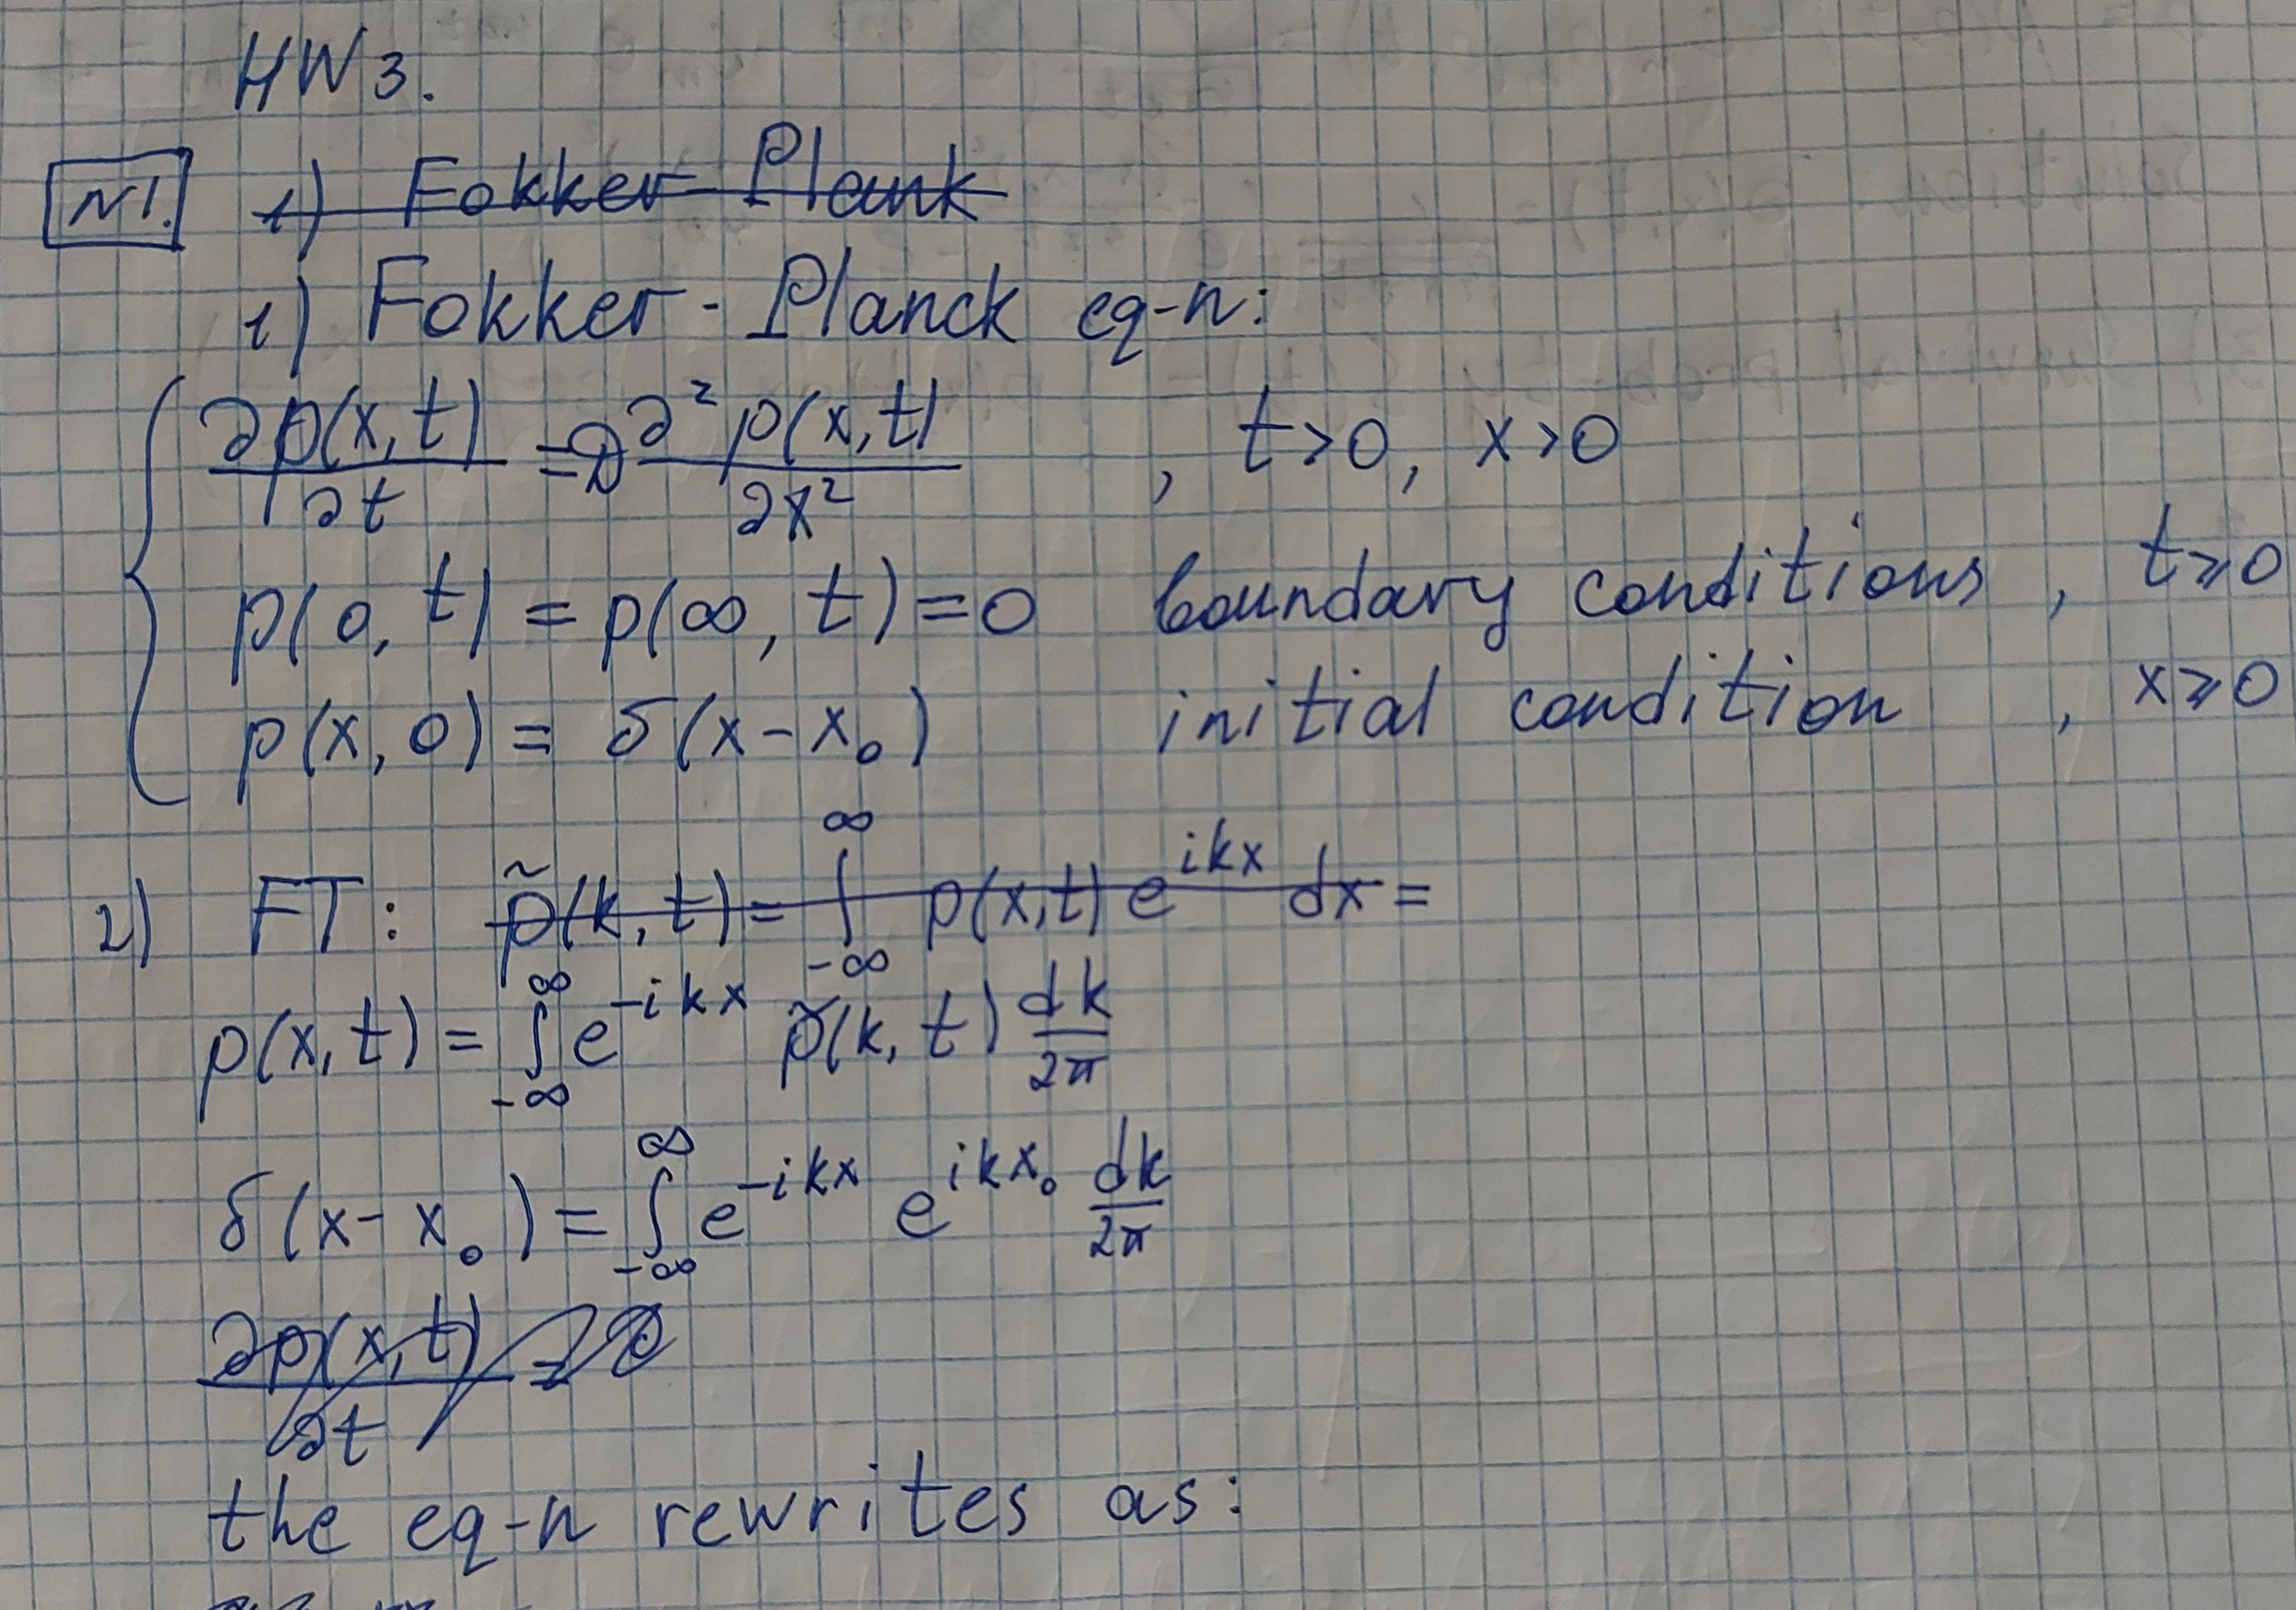 HW 3.
N1. 1) Fokker-Plank
1) Fokker-Planck eq-n:
∂p(x,t)/∂t = D ∂²p(x,t)/∂x² , t>0, x>0
p(0,t) = p(∞,t) = 0 boundary conditions , t⩾0
p(x,0) = δ(x-x₀) initial condition , x⩾0
2) FT: p̃(k,t) = ∫_{-∞}^{∞} p(x,t) e^{ikx} dx =
p(x,t) = ∫_{-∞}^{∞} e^{-ikx} p̃(k,t) dk/2π
δ(x-x₀) = ∫_{-∞}^{∞} e^{-ikx} e^{ikx₀} dk/2π
∂p(x,t)/∂t =
the eq-n rewrites as: